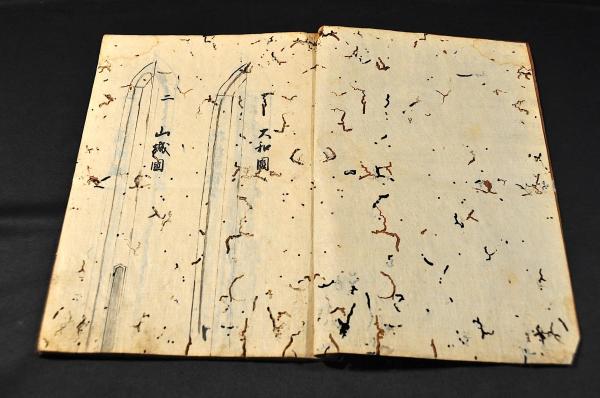 一 大和國
二 山城國